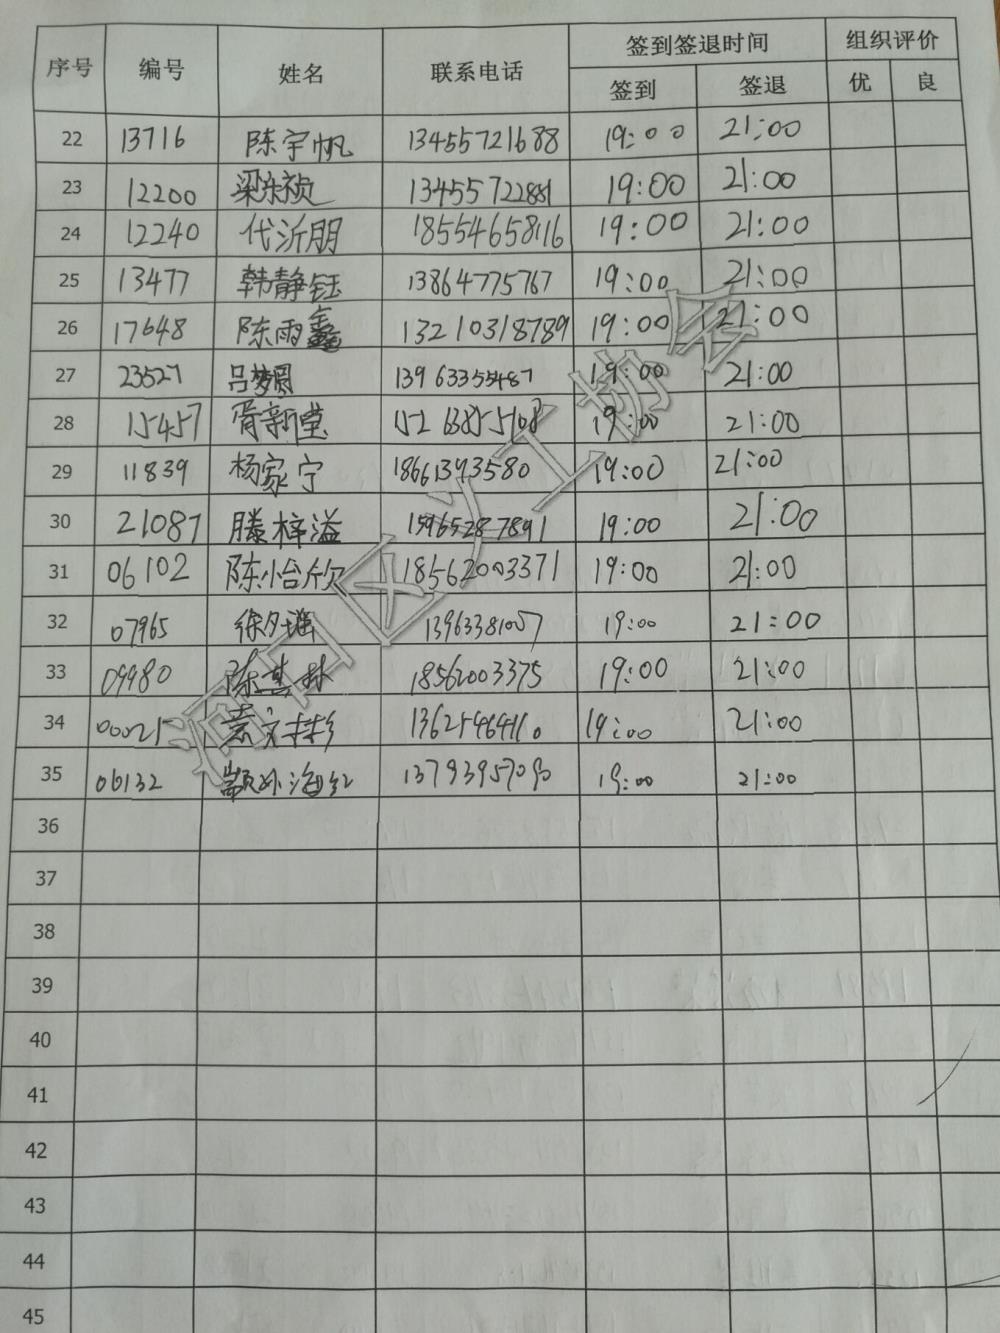 序号 编号 姓名 联系电话 签到签退时间 组织评价
签到 签退 优 良
22 13716 陈宇帆 13455721688 19:00 21:00
23 12200 梁东祯 13455722881 19:00 21:00
24 12240 代沂朋 18554658116 19:00 21:00
25 13477 韩静钰 13864775767 19:00 21:00
26 17648 陈雨鑫 13210318789 19:00 21:00
27 23527 吕梦圆 13963355487 19:00 21:00
28 15457 胥新莹 19:00 21:00
29 11839 杨家宁 18661393580 19:00 21:00
30 21087 滕梓溢 15965287891 19:00 21:00
31 06102 陈怡欣 18562003371 19:00 21:00
32 07965 徐夕瑶 13963381007 19:00 21:00
33 09980 陈其林 18562003375 19:00 21:00
34 00025 19:00 21:00
35 06132 海红 13793957090 19:00 21:00
36
37
38
39
40
41
42
43
44
45
区义工协会